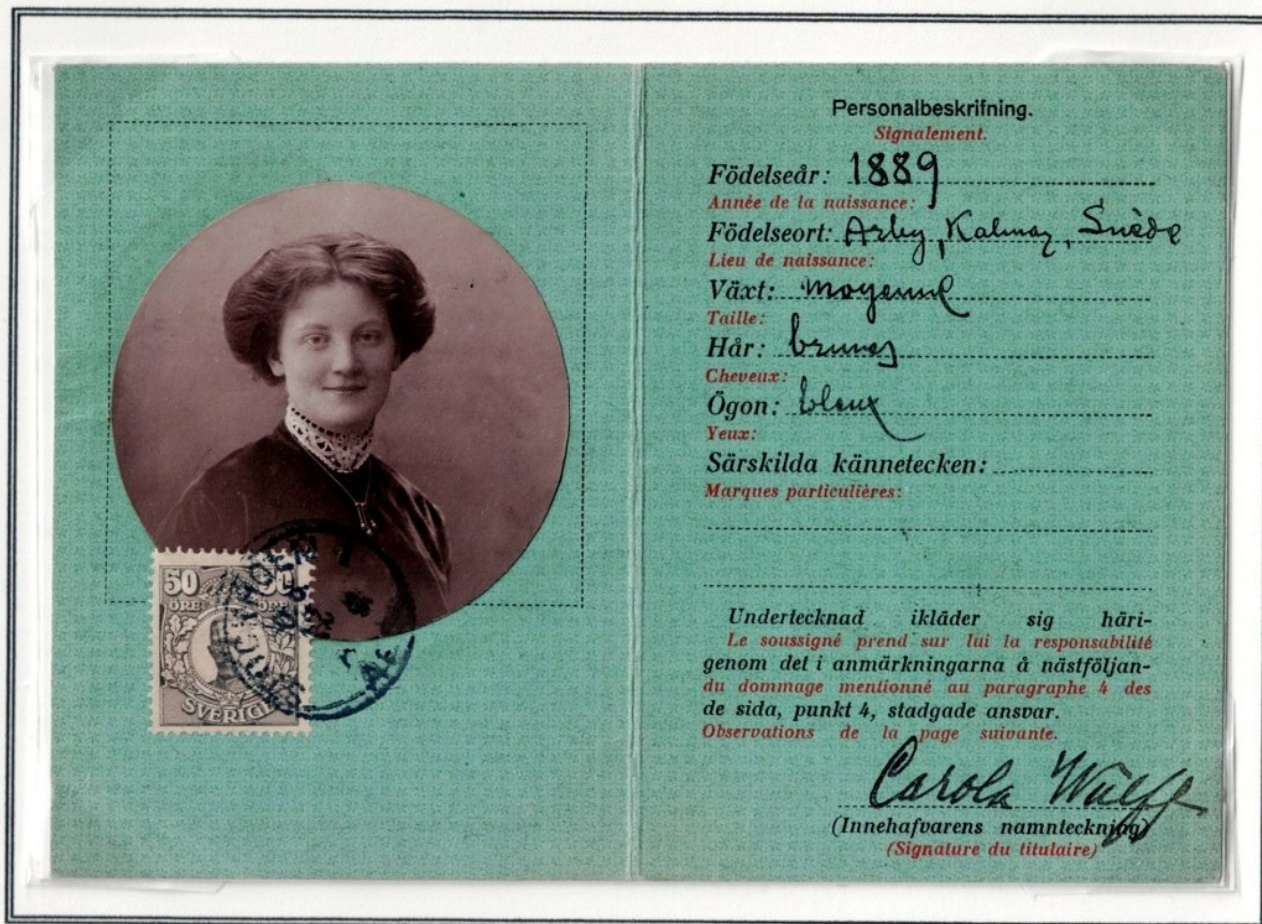 50 50
ÖRE ÖRE
SVERIGE
STOCKHOLM 1
Personalbeskrifning.
Signalement.
Födelseår: 1889
Année de la naissance:
Födelseort: Arby, Kalmar, Suède
Lieu de naissance:
Växt: moyenne
Taille:
Hår: brunes
Cheveux:
Ögon: bleux
Yeux:
Särskilda kännetecken:
Marques particulières:
Undertecknad ikläder sig häri-
Le soussigné prend sur lui la responsabilité
genom det i anmärkningarna å nästföljan-
du dommage mentionné au paragraphe 4 des
de sida, punkt 4, stadgade ansvar.
Observations de la page suivante.
Carola Wulff
(Innehafvarens namnteckning)
(Signature du titulaire)